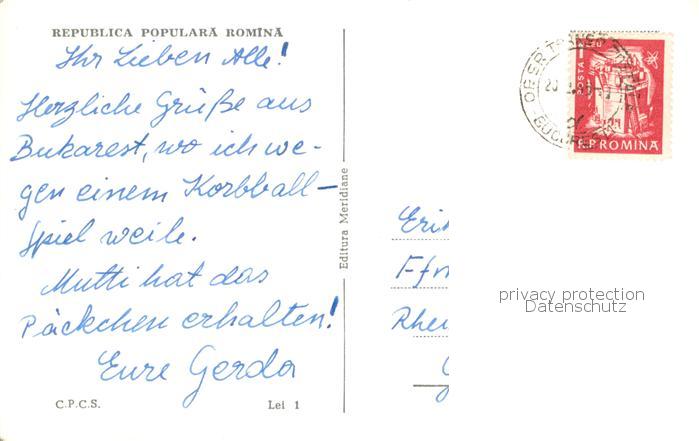 REPUBLICA POPULARĂ ROMÎNĂ
Ihr Lieben Alle!
Herzliche Grüße aus
Bukarest, wo ich we-
gen einem Korbball-
spiel weile.
Mutti hat das
Päckchen erhalten!
Eure Gerda
C.P.C.S.
Lei 1
Editura Meridiane
POSTA
R.P.ROMINA
Ffm
privacy protection
Datenschutz